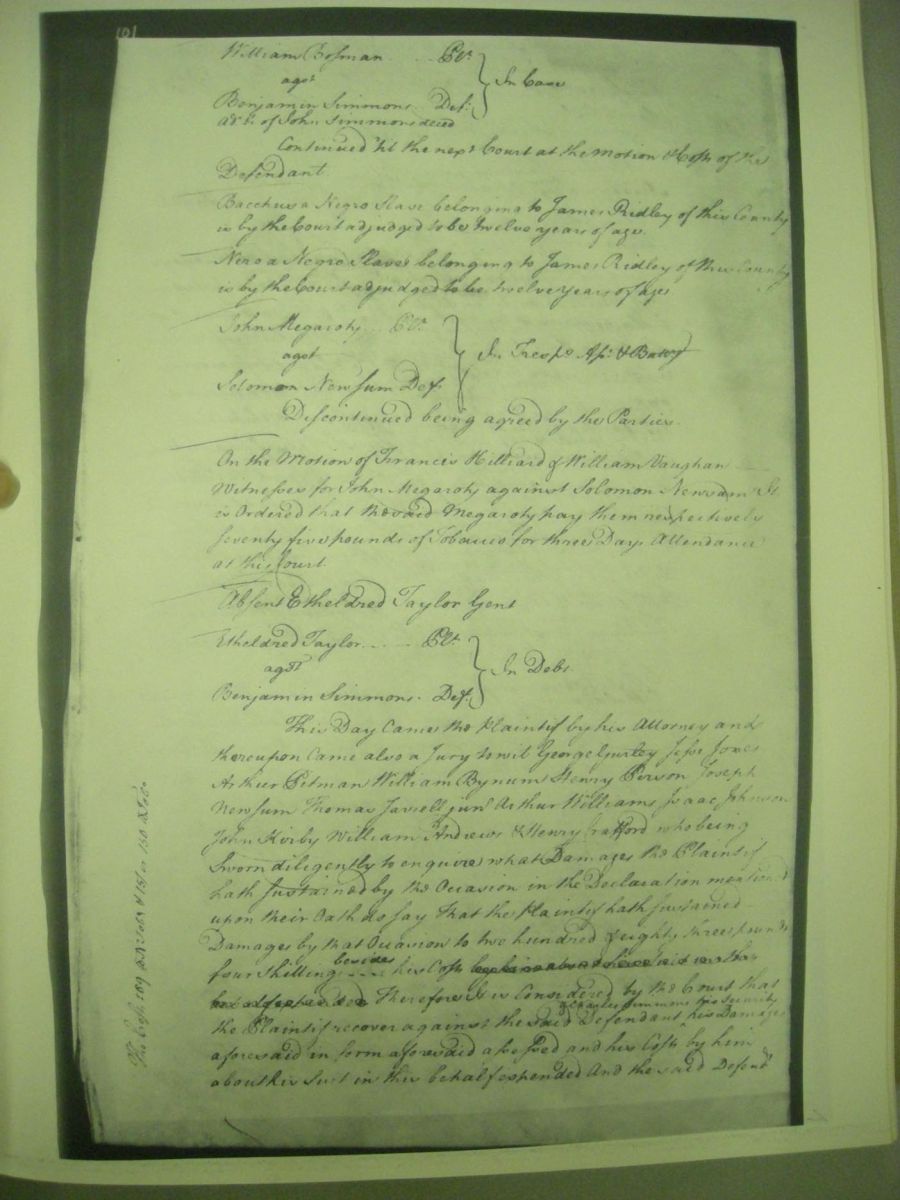 101
William Bosman Plt.
agst
Benjamin Simmons Deft.
adr. of John Simmons deced
In Case
Continued 'til the next Court at the Motion & Costs of the
Defendant.
Bacchus a Negro Slave belonging to James Ridley of this County
is by the Court adjudged to be twelve years of age.
Nero a Negro Slave belonging to James Ridley of this County
is by the Court adjudged to be twelve years of age
John Megaroty Plt.
agst
Solomon Newsum Deft.
In Tresps. Ast. & Battry
Discontinued being agreed by the Parties.
On the Motion of Francis Hilliard & William Vaughan
Witnesses for John Megaroty against Solomon Newsum It
is Ordered that the said Megaroty pay them respectively
seventy five pounds of Tobacco for three Days Attendance
at this Court.
Absent Etheldred Taylor Gent
Etheldred Taylor Plt.
agst
Benjamin Simmons Deft.
In Debt
This Day Came the Plaintif by his Attorney and
thereupon Came also a Jury to wit George Gurley Jesse Jones
Arthur Pitman William Bynum Henry Person Joseph
Newsum Thomas Jarrell junr. Arthur Williams Isaac Johnson
John Kirby William Andrews & Henry Crafford who being
Sworn diligently to enquire what Damages the Plaintif
hath Sustained by the Occasion in the Declaration mentioned
upon their Oath do say That the Plaintif hath sustained
Damages by that Occasion to two hundred & eighty three pounds
four Shillings besides his Costs
Therefore It is Considered by the Court that
the Plaintif recover against the said Defendant & Charles Simmons his Security his Damages
aforesaid in form aforesaid assessed and his Costs by him
about his Suit in this behalf expended And the said Defendt.
The Costs 109